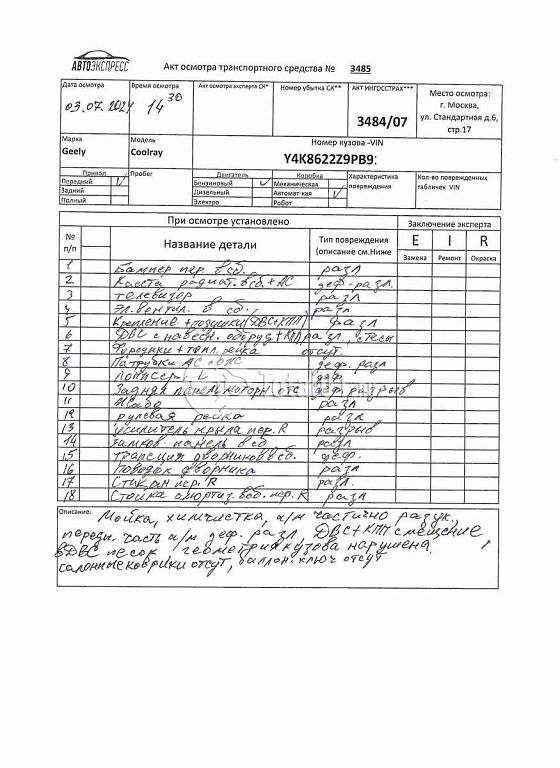 АВТОЭКСПРЕСС
Акт осмотра транспортного средства № 3485
Дата осмотра Время осмотра Акт осмотра эксперта СК* Номер убытка СК** АКТ ИНГОССТРАХ*** Место осмотра:
03.07.2024 14 30 3484/07 г. Москва,
ул. Стандартная д.6,
стр.17
Марка Модель Номер кузова -VIN
Geely Coolray Y4K8622Z9PB9
Привод Пробег Двигатель Коробка Характеристика повреждения Кол-во поврежденных табличек VIN
Передний V Бензиновый V Механическая
Задний Дизельный Автомат-кая V
Полный Электро Робот
При осмотре установлено Заключение эксперта
№ п/п Название детали Тип повреждения (описание см.Ниже E I R
Замена Ремонт Окраска
1 Бампер пер. в сб. разл
2 Кассета радиат. в сб. + АС деф. разл.
3 телевизор разл
4 Эл. вентил. в сб. разл
5 Крепление + подушки (ДВС+КПП) разл
6 ДВС с навесн. оборуд + КПП разл., стесы
7 Форсунки + топл. рейка отсут.
8 Патрубки АС + ОЖС деф. разл
9 Лонжер. L деф
10 Задняя панель моторн отс деф разрыв
11 разл
12 рулевая рейка разл
13 усилитель крыла пер. R разрыв
14 замков. панель в сб разл
15 трапеция дворников в сб. деф.
16 Поводок дворника разл
17 Стакан пер. R разл.
18 Стойка амортиз. в сб. пер. R разл
Описание: Мойка, химчистка, а/м частично разук,
передн. часть а/м деф. разл, ДВС+КПП смещение,
в ДВС песок, геометрия кузова нарушена
салонные коврики отсут, баллон. ключ отсут